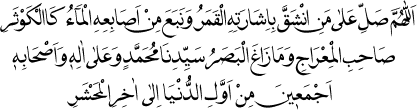 اَللّٰهُمَّ صَلِّ عَلٰى مَنِ انْشَقَّ بِاِشَارَتِهِ الْقَمَرُ وَنَبَعَ مِنْ اَصَابِعِهِ الْمَآءُ كَالْكَوْثَرِ
صَاحِبِ الْمِعْرَاجِ وَمَا زَاغَ الْبَصَرُ سَيِّدِنَا مُحَمَّدٍ وَعَلٰى اٰلِهٖ وَاَصْحَابِهٖ
اَجْمَعٖينَ مِنْ اَوَّلِ الدُّنْيَا اِلٰى اٰخِرِ الْمَحْشَرِ